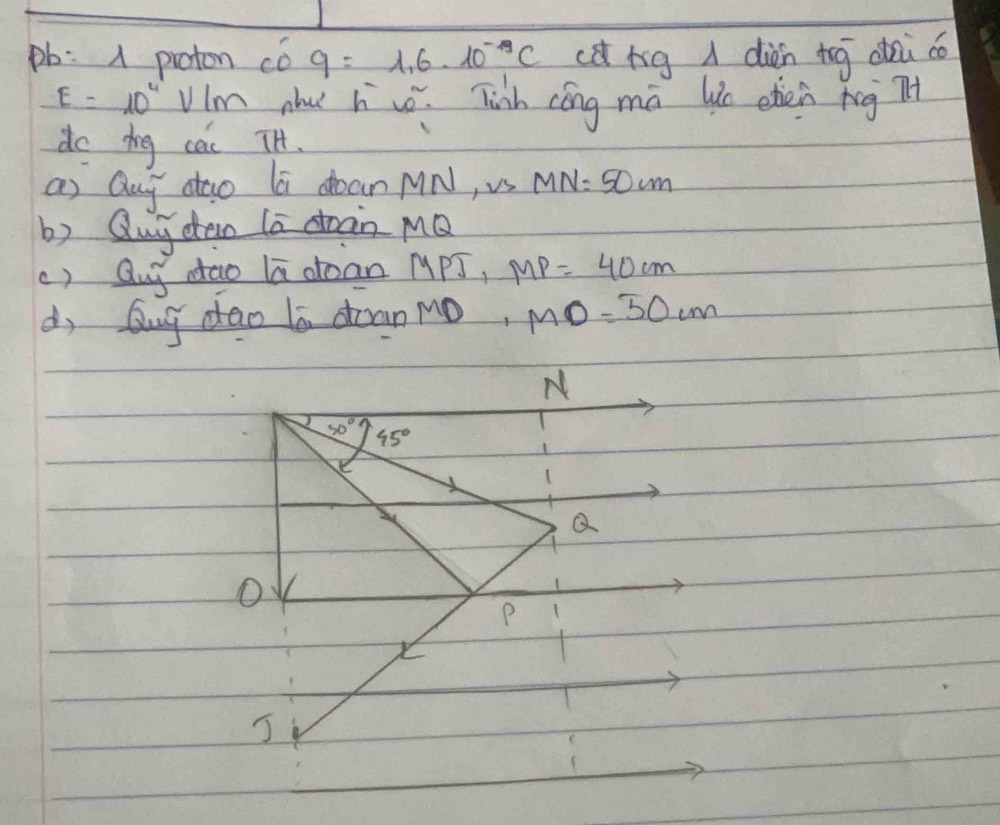 Pb: 1 proton có q = 1,6.10⁻¹⁹C cđ trg 1 điện trg đều có
E = 10⁴ V/m như h vẽ. Tính công mà lực điện trg TH
đc trg các TH.
a) Quỹ đạo là đoạn MN, vs MN = 50cm
b) Quỹ đạo là đoạn MQ
c) Quỹ đạo là đoạn MPJ, MP = 40cm
d) Quỹ đạo là đoạn MO, MO = 30cm
N
30° 45°
Q
O P
J